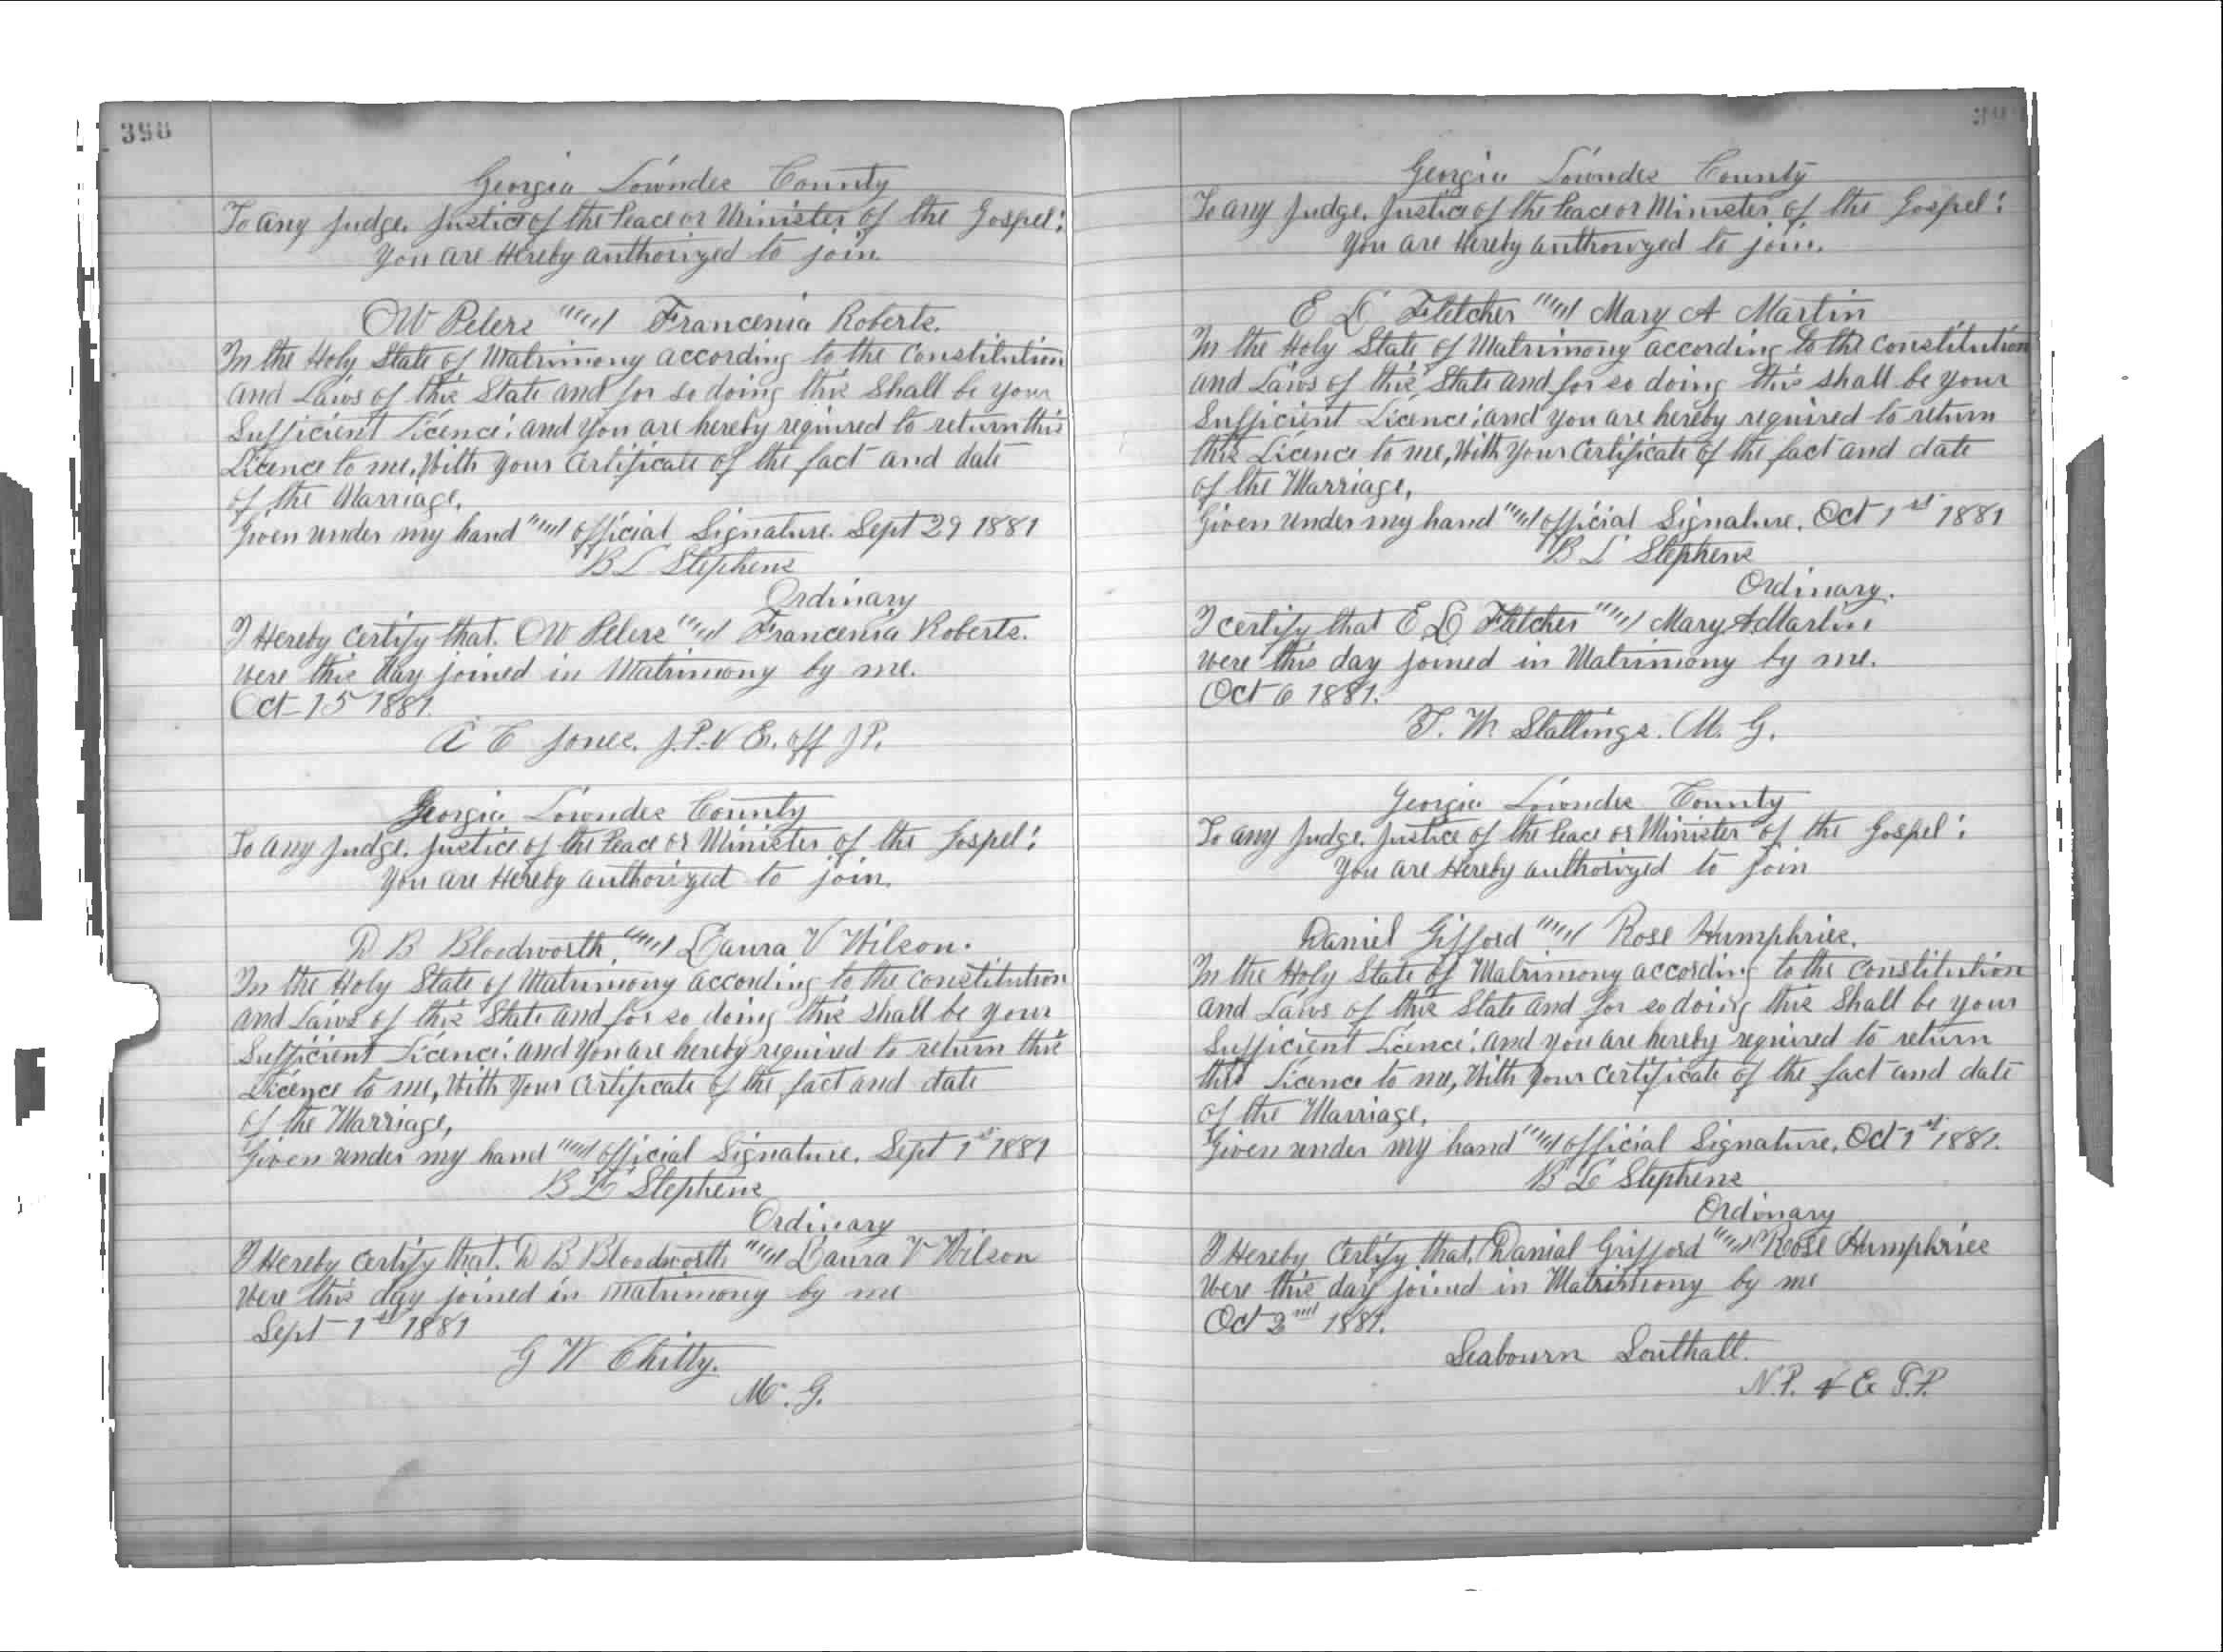 398
Georgia Lowndes County
To any Judge, Justice of the Peace or Minister of the Gospel:
You are Hereby authorized to join.
O W Peters and Francenia Roberts.
In the Holy State of Matrimony according to the Constitution
and Laws of this State and for so doing this Shall be your
Sufficient Licence: and you are hereby required to return this
Licence to me, With your Certificate of the fact and date
of the Marriage.
Given under my hand and official Signature. Sept 29 1881
B L Stephens
Ordinary
I Hereby Certify that. O W Peters and Francenia Roberts.
were this day joined in Matrimony by me.
Oct 15 1881.
A C Jones. J.P. off J P.
Georgia Lowndes County
To any Judge, Justice of the Peace or Minister of the Gospel:
You are Hereby authorized to join.
D B Bloodworth, and Laura V Wilson.
In the Holy State of Matrimony according to the Constitution
and Laws of this State and for so doing this shall be your
Sufficient Licence: and you are hereby required to return this
Licence to me, With your Certificate of the fact and date
of the Marriage,
Given under my hand and official Signature. Sept 1st 1881
B L Stephens
Ordinary
I Hereby Certify that. D B Bloodworth and Laura V Wilson
were this day joined in Matrimony by me
Sept 1st 1881
G W Chitty.
M. G.
Georgia Lowndes County
To any Judge, Justice of the Peace or Minister of the Gospel:
You are Hereby authorized to join.
E L Fletcher and Mary A Martin
In the Holy State of Matrimony according to the Constitution
and Laws of this State and for so doing this shall be your
Sufficient Licence: and you are hereby required to return
this Licence to me, With your Certificate of the fact and date
of the Marriage,
Given under my hand and official Signature. Oct 1st 1881
B L Stephens
Ordinary.
I certify that E L Fletcher and Mary A Martin
were this day joined in Matrimony by me.
Oct 6 1881.
T. W. Stallings. M. G.
Georgia Lowndes County
To any Judge, Justice of the Peace or Minister of the Gospel:
You are Hereby authorized to join
Daniel Gifford and Rose Humphries.
In the Holy State of Matrimony according to the Constitution
and Laws of this State and for so doing this Shall be your
Sufficient Licence: and you are hereby required to return
this Licence to me, With your Certificate of the fact and date
of the Marriage,
Given under my hand and official Signature, Oct 1st 1881.
B L Stephens
Ordinary
I Hereby Certify that, Danial Grifford and Rose Humphries
were this day joined in Matrimony by me
Oct 2nd 1881.
Seabourn Southall.
N.P. & Ex J.P.